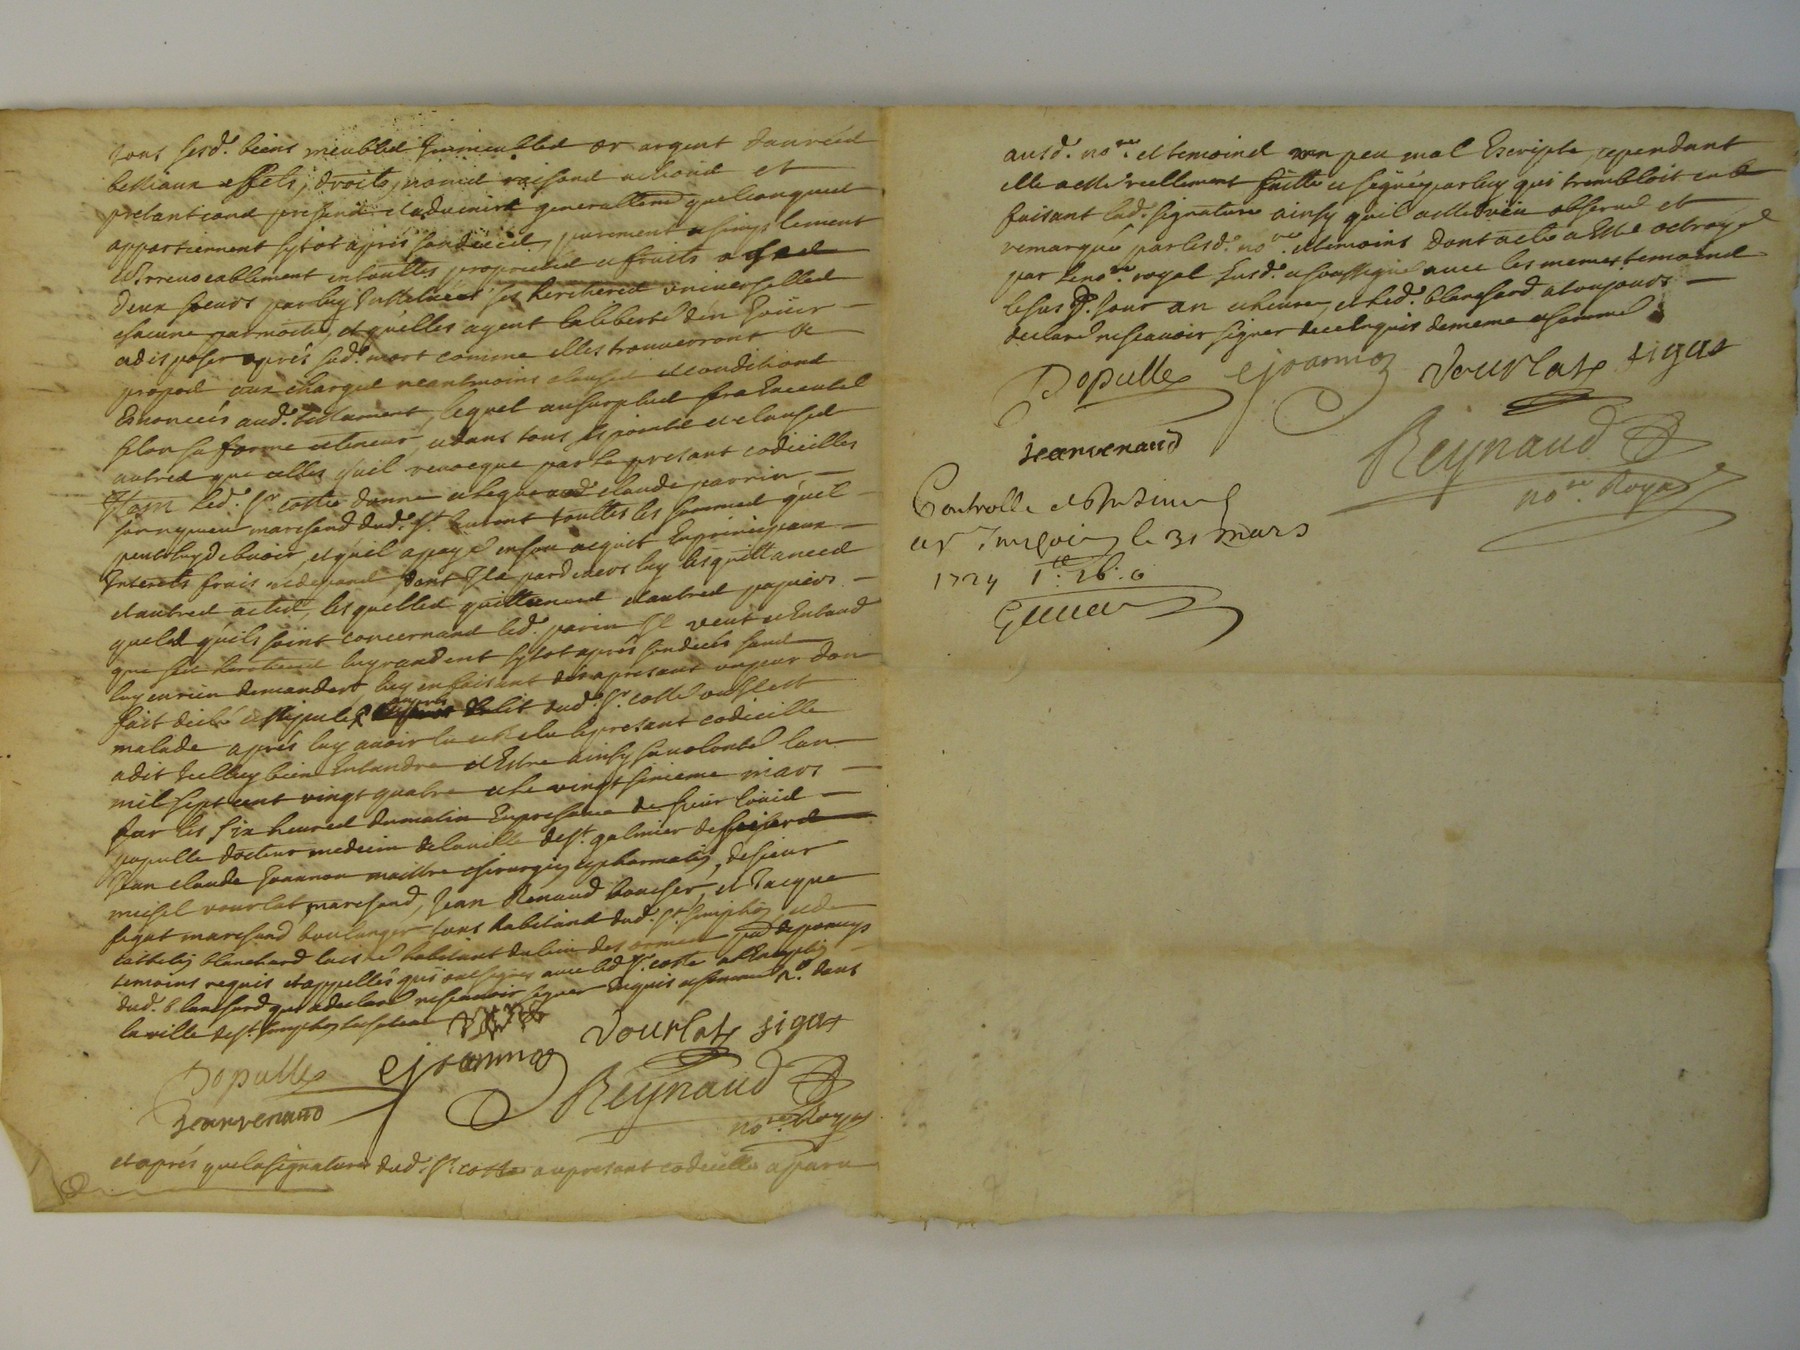 tous sesd. biens meubles immeubles or argent danrées
bestiaux effets, droits, noms raisons actions et
pretantions presants et advenirs generallem.t quelconques
appartiennent sytot après son décéd, purement simplement
et irrevocablement en touttes proprietés et fruits a ses
deux soeurs par luy instituées ses heritieres universelles
chacune par moitié, et qu'elles ayent la liberté d'en jouir
a disposer après sed. mort comme elles trouverront a
propos aux charges neantmoins clauses et conditions
enoncées aud. testament, lequel au surplus sera executé
selon sa forme et teneur, et dans tous ses points et clauses
autres que celles qu'il revocque par le presant codicilles
Item led. Sr. coste donne et legue aud. claude parrin
marchand dud. St. touttes les sommes qu'il
peut luy debvoir, et qu'il a payé en son acquit en principaux
interets frais et depand, dont il a pardevers luy les quittances
et autres actes, lesquelles quittances et autres papiers
quels qu'ils soint concernand led. parrin il veut et entand
que ses heritieres luy randent sytot après son décés sans
luy en rien demander luy en faisant dès apresant vapeur don
fait dicté et stipulé auprès du lit dud. Sr. coste ou il est
malade après luy avoir lu et relu le presant codicille
a dit icelluy bien entandre et estre ainsy sa volonté lan
mil sept cent vingt quatre et le vingt sixieme mars
sur les six heures du matin en presance de sieur louis
populle docteur medecin de la ville de St. galmier de
Jean claude Joannon maittre chirurgien et pharmatien, de sieur
michel vourlat marchand, Jean Renaud boucher, et Jacque
sigat marchand boulanger tous habitand dud. St. simphorien, et de
blanchard habitant du lieu des par. de pomeys
temoins requis et appellés qui ont signés avec led. Sr. coste a l'exception
dud. blanchard qui a declaré ne scavoir signer enquis et sommé r. dans
la ville de St. simphorien le chateau
Populle cjoannon Vourlat sigat
jean renaud Reynaud
no.re Royal
et après que la signature dud. Sr. coste au presant codicille a paru
ausd. no.re et temoins un peu mal escripte, cependant
elle a esté reellement faitte et signée par luy qui trembloit en
faisant lad. signature ainsy qu'il a esté vëu observé et
remarqué par lesd. no.re et temoins dont acte a esté octroyé
par le no.re royal susd. et soussigné avec les memes temoins
lesus d. jour an et heure, et led. blanchard a toujours
declaré ne scavoir signer de ce enquis de meme et sommé
Populle cjoannon Vourlat sigat
jean renaud
Reynaud
no.re Royal
Controllé et Insinué
a St. Simphorien le 31 mars
1724